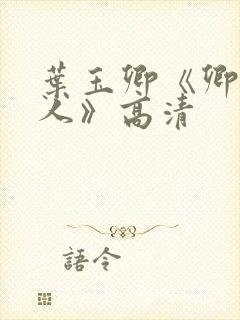 葉玉卿《卿
人》高清
語令